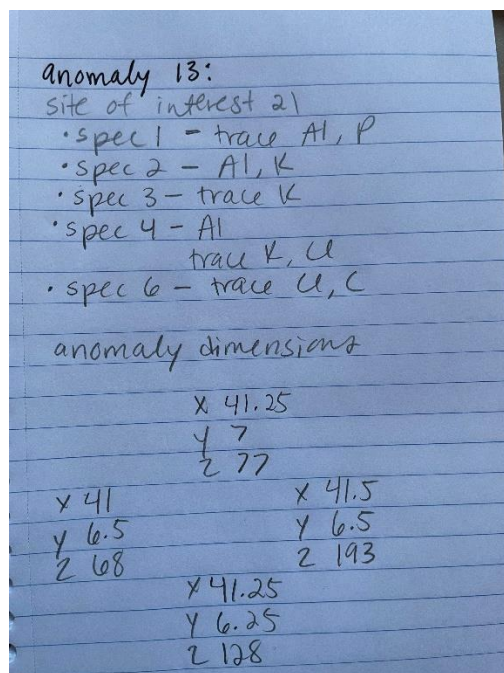 anomaly 13:
site of interest 21
• spec 1 - trace Al, P
• spec 2 - Al, K
• spec 3 - trace K
• spec 4 - Al
trace K, Cl
• spec 6 - trace Cl, C
anomaly dimensions
X 41.25
y 7
z 77
X 41
y 6.5
z 68
X 41.5
y 6.5
z 193
X 41.25
y 6.25
z 128